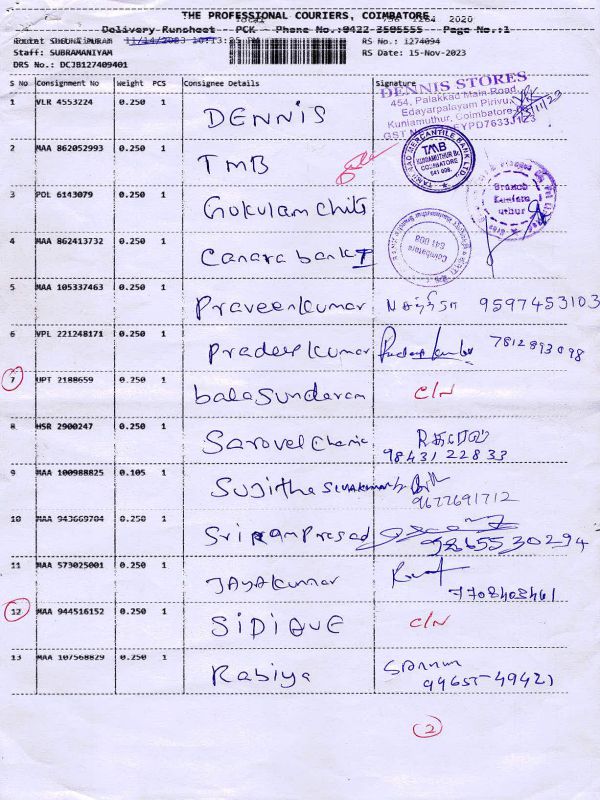 THE PROFESSIONAL COURIERS, COIMBATORE
Delivery Runsheet - PCK - Phone No.:0422-3505555 Page No.:1
RS No.: 1274094
Staff: SUBRAMANIYAM RS Date: 15-Nov-2023
DRS No.: DCJB127409401
S No Consignment No Weight PCS Consignee Details Signature
DENNIS STORES
454, Palakkad Main Road,
Edayarpalayam Pirivu,
Kuniamuthur, Coimbatore
1 VLR 4553224 0.250 1 DENNIS
2 MAA 862052993 0.250 1 TMB
TAMILNAD MERCANTILE BANK LTD
TMB
KUNIAMUTHUR Br.
COIMBATORE
641 008.
3 POL 6143079 0.250 1 Gokulam chits
Branch
4 MAA 862413732 0.250 1 Canara bank
Coimbatore
641 008
5 MAA 105337463 0.250 1 Praveenkumar 9597453103
6 VPL 221248171 0.250 1 Pradeep kumar Pradeep kumar 7812893098
7 UPT 2188659 0.250 1 bala Sundaram C/N
8 HSR 2900247 0.250 1
98431 22833
9 MAA 100988825 0.105 1 Sujitha
9677691712
10 MAA 943669704 0.250 1 Sri Ram Prasad
9865530294
11 MAA 573025001 0.250 1 JAYAkumar
12 MAA 944516152 0.250 1 SIDIQUE C/N
13 MAA 107568829 0.250 1 Rabiya
99655-49421
2